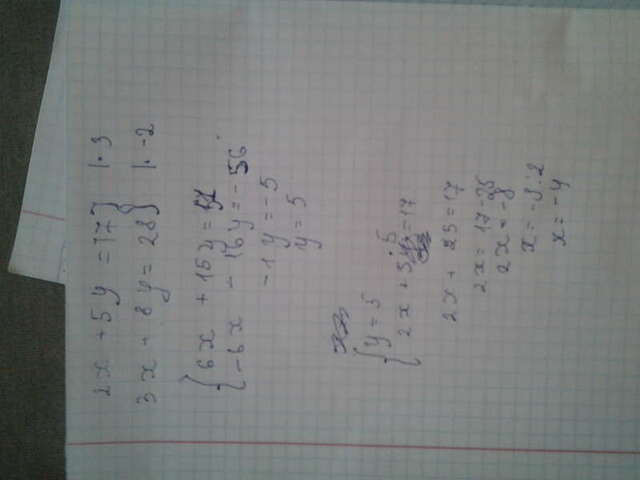 2x + 5y = 17 } |· 3
3x + 8y = 28 } |· -2
{ 6x + 15y = 51
{ -6x - 16y = -56
-1y = -5
y = 5
{ y = 5
{ 2x + 5 · 5 = 17
2x + 25 = 17
2x = 17-25
2x = -8
x = -8:2
x = -4